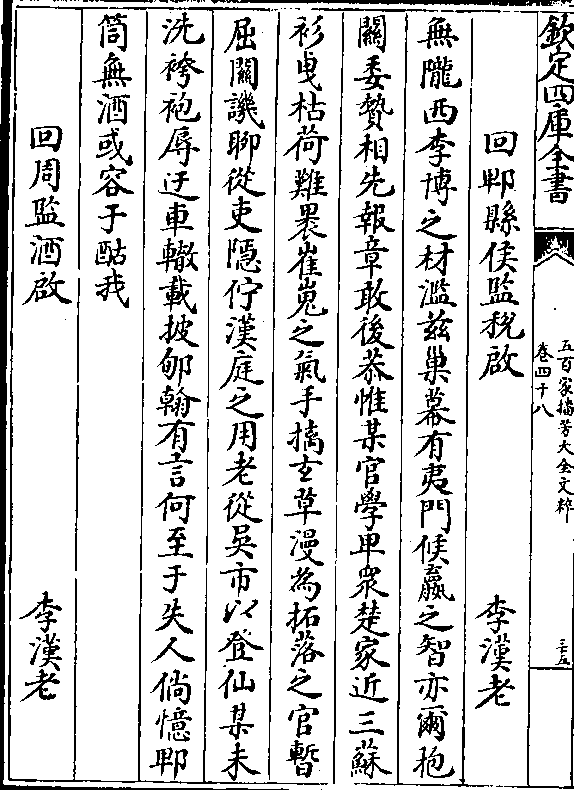 欽定四庫全書
五百家播芳大全文粹
卷四十八
三十五
回郫縣侯監税啟 李漢老
無隴西李博之材濫兹巢幕有夷門候嬴之智亦爾抱
關委贄相先報章敢後恭惟某官學甲衆楚家近三蘇
衫曳枯荷難褁崔嵬之氣手摛玄草漫為拓落之官暫
屈關譏聊從吏隱佇漢庭之用老從吳市以登仙某未
洗袴袍辱迂車轍載披郇翰有言何至于失人倘憶郫
筒無酒或容于酤我
回周監酒啟 李漢老